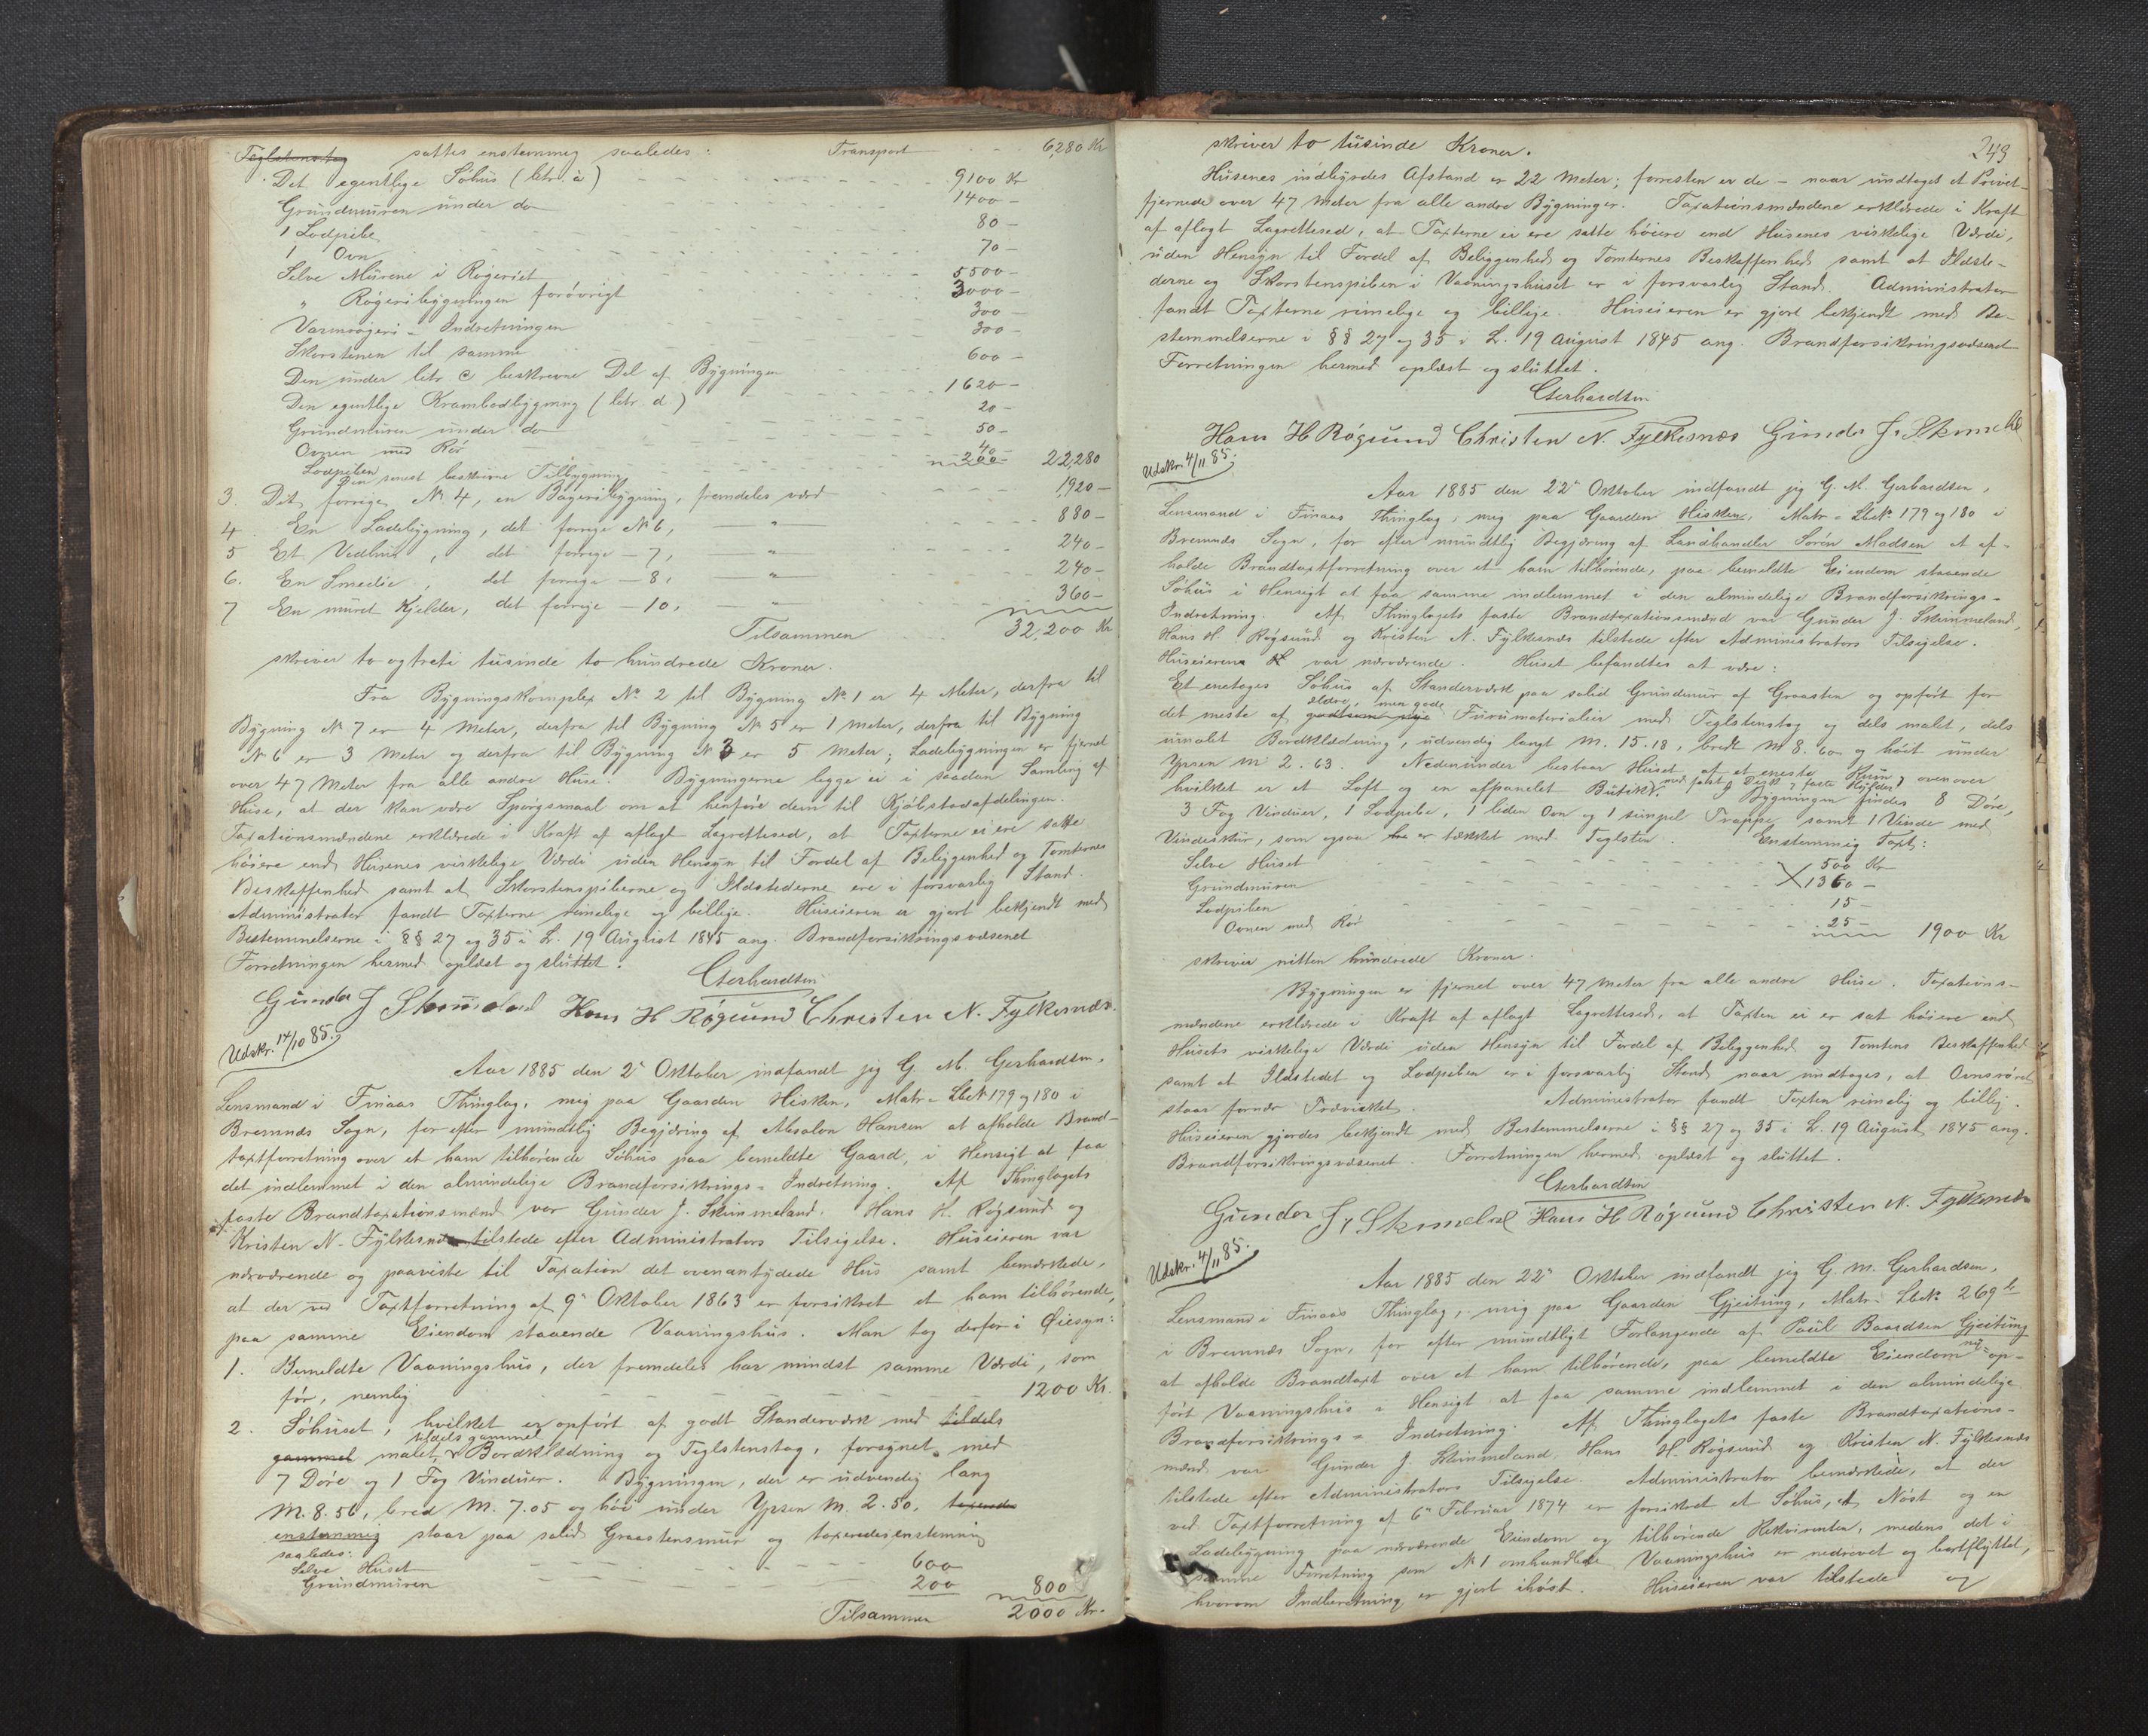 Teglstenstag sattes enstemmig saaledes: Transport 6,280 Kr
Det egentlige Söhus (letr. a) 9100 Kr
Grundmuren under do 1400 –
1 Lodpibe 80 –
1 Ovn 70 –
Selve Murene i Røgeriet 5500 –
" Rögeribygningen forövrigt 3000 –
Varmrögeri-Indretningen 300 –
Skorstenen til samme 300 –
Den under letr. c beskrevne Del af Bygningen 600 –
Den egentlige Krambodbygning (letr. d.) 1620 –
Grundmuren under do 20 –
Ovnen med Rör 50 –
Lodpiben 40 –
Den senest beskrevne Tilbygning 200 – 22,280
3. Det forrige No 4, en Bageribygning, fremdeles værd 1,920 –
4. En Ladebygning, det forrige No 6, — " 880 –
5 Et Vedhus, det forrige – 7, — " 240 –
6. En Smedie, det forrige – 8, — " 240 –
7 En muret Kjelder, det forrige – 10, — " 360 –
Tilsammen 32,200 Kr
skriver to og treti tusinde to hundrede Kroner.
Fra Bygningskomplex No 2 til Bygning No 1 er 4 Meter, derfra til
Bygning No 7 er 4 Meter, derfra til Bygning No 5 er 1 Meter, derfra til Bygning
No 6 er 3 Meter og derfra til Bygning No 3 er 5 Meter; Ladebygningen er fjernet
over 47 Meter fra alle andre Huse. Bygningerne ligge ei i saadan Samling af
Huse, at der kan være Spørgsmaal om at henføre dem til Kjöbstadafdelingen.
Taxationsmændene erklærede i Kraft af aflagt Lagrettesed, at Taxterne ei ere satte
höiere end Husenes virkelige Værdi uden Hensyn til Fordel af Beliggenhed og Tomternes
Beskaffenhed samt at Skorstenspiberne og Ildstederne ere i forsvarlig Stand.
Administrator fandt Taxterne rimelige og billige. Huseieren er gjort bekjendt med
Bestemmelserne i §§ 27 og 35 i L. 19 August 1845 ang. Brandforsikringsvæsenet
Forretningen hermed oplæst og sluttet.
Gerhardsen
Gunder J Skimmeland Hans H Røgsund Christen N. Fylkesnæs.
Udskr. 14/10 85.
Aar 1885 den 2' Oktober indfandt jeg G. M. Gerhardsen,
Lensmand i Finaas Thinglag, mig paa Gaarden Hisken, Matr. Lbe No 179 og 180 i
Bremnæs Sogn, for efter mundtlig Begjæring af Absalon Hansen at afholde Brand-
taxtforretning over et ham tilhørende Söhus paa bemeldte Gaard, i Hensigt at faa
det indlemmet i den almindelige Brandforsikrings-Indretning. Af Thinglagets
faste Brandtaxationsmænd var Gunder J. Skimmeland, Hans H. Røgsund og
Kristen N. Fylkesnæs tilstede efter Administrators Tilsigelse. Huseieren var
nærværende og paaviste til Taxation det ovenantydede Hus samt bemærkede,
at der ved Taxtforretning af 9' Oktober 1863 er forsikret et ham tilhørende,
paa samme Eiendom staaende Vaaningshus. Man tog derfor i Øiesyn:
1. Bemeldte Vaaningshus, der fremdeles har mindst samme Værdi, som
før, nemlig 1200 Kr.
2. Söhuset, hvilket er opført af godt Standerværk med tildels
tildels gammel
gammel malet Bordklædning og Teglstenstag, forsynet med
7 Döre og 1 Fag Vinduer. Bygningen, der er udvendig lang
M. 8.56, bred M. 7.05 og höi under Ypsen M. 2.50, taxeredes
enstemmig staar paa solid Graastensmur og taxeredes enstemmig
saaledes:
Selve Huset 600
Grundmuren 200 800
Tilsammen 2000 Kr.
243
skriver to tusinde Kroner.
Husenes indbyrdes Afstand er 22 Meter; forresten er de – naar undtages et Privet –
fjernede over 47 Meter fra alle andre Bygninger. Taxationsmændene erklærede i Kraft
af aflagt Lagrettesed, at Taxterne ei ere satte höiere end Husenes virkelige Værdi,
uden Hensyn til Fordel af Beliggenhed og Tomternes Beskaffenhed samt at Ildste-
derne og Skorstenspiben i Vaaningshuset er i forsvarlig Stand. Administrator
fandt Taxterne rimelige og billige. Huseieren er gjort bekjendt med Be-
stemmelserne i §§ 27 og 35 i L. 19 August 1845 ang. Brandforsikringsvæsenet
Forretningen hermed oplæst og sluttet.
Gerhardsen
Hans H Røgsund Christen N. Fylkesnæs Gunder J. Skimmel
Udskr. 4/11 85.
Aar 1885 den 22' Oktober indfandt jeg G. M. Gerhardsen,
Lensmand i Finaas Thinglag, mig paa Gaarden Hisken, Matr. Lbe No 179 og 180 i
Bremnæs Sogn, for efter mundtlig Begjæring af Landhandler Sorén Madsen at af-
holde Brandtaxtforretning over et ham tilhørende, paa bemeldte Eiendom staaende
Söhus i Hensigt at faa samme indlemmet i den almindelige Brandforsikrings-
Indretning. Af Thinglagets faste Brandtaxationsmænd var Gunder J. Skimmeland,
Hans H. Røgsund og Kristen N. Fylkesnæs tilstede efter Administrators Tilsigelse.
Huseieren var nærværende. Huset befandtes at være:
Et enetages Söhus af Standerværk paa solid Grundmur af Graasten og opført for
ældre, men gode
det meste af Furumaterialier med Teglstenstag og dels malet, dels
umalet Bordklædning, udvendig langt M. 15.18, bredt M 8.60 og höit under
Ypsen M 2.63. Nedenunder bestaar Huset af et eneste Rum, ovenover
med fast Disk og faste Hylder
hvilket er et Loft og en afpanelet Butik. I Bygningen findes 8 Döre,
3 Fag Vinduer, 1 Lodpibe, 1 liden Ovn og 1 simpel Trappe samt 1 Vinde med
Vindeskur, som ogsaa er tækket med Teglsten. Enstemmig Taxt:
Selve Huset 500 Kr
Grundmuren 1360 –
Lodpiben 15 –
Ovnen med Rör 25 – 1900 Kr
skriver nitten hundrede Kroner.
Bygningen er fjernet over 47 Meter fra alle andre Huse. Taxations-
mændene erklærede i Kraft af aflagt Lagrettesed, at Taxten ei er sat höiere end
Husets virkelige Værdi uden Hensyn til Fordel af Beliggenhed og Tomtens Beskaffenhed
samt at Ildstedet og Lodpiben er i forsvarlig Stand naar undtages, at Ovnsröret
staar fornær Træværket. Administrator fandt Taxten rimelig og billig.
Huseieren gjordes bekjendt med Bestemmelserne i §§ 27 og 35 i L. 19 August 1845 ang.
Brandforsikringsvæsenet. Forretningen hermed oplæst og sluttet.
Gerhardsen
Gunder J. Skimmeland Hans H Røgsund Christen N. Fylkesnæs
Udskr. 4/11 85.
Aar 1885 den 22' Oktober indfandt jeg G. M. Gerhardsen,
Lensmand i Finaas Thinglag, mig paa Gaarden Gjeitung, Matr. Lbe No 269 b
i Bremnæs Sogn, for efter mundtligt Forlangende af Paul Baardsen Gjeitung
at afholde Brandtaxt over et ham tilhørende, paa bemeldte Eiendom ny-op-
fört Vaaningshus i Hensigt at faa samme indlemmet i den almindelige
Brandforsikrings-Indretning. Af Thinglagets faste Brandtaxations-
mænd var Gunder J. Skimmeland Hans H. Røgsund og Kristen N. Fylkesnæs
tilstede efter Administrators Tilsigelse. Administrator bemærkede, at der
ved Taxtforretning af 6' Februar 1874 er forsikret et Söhus, et Nöst og en
Ladebygning paa nærværende Eiendom og tilhørende Rekvirenten, medens det i
samme Forretning som No 1 omhandlede Vaaningshus er nedrevet og bortflyttet,
hvorom Indberetning er gjort ihöst. Huseieren var tilstede og